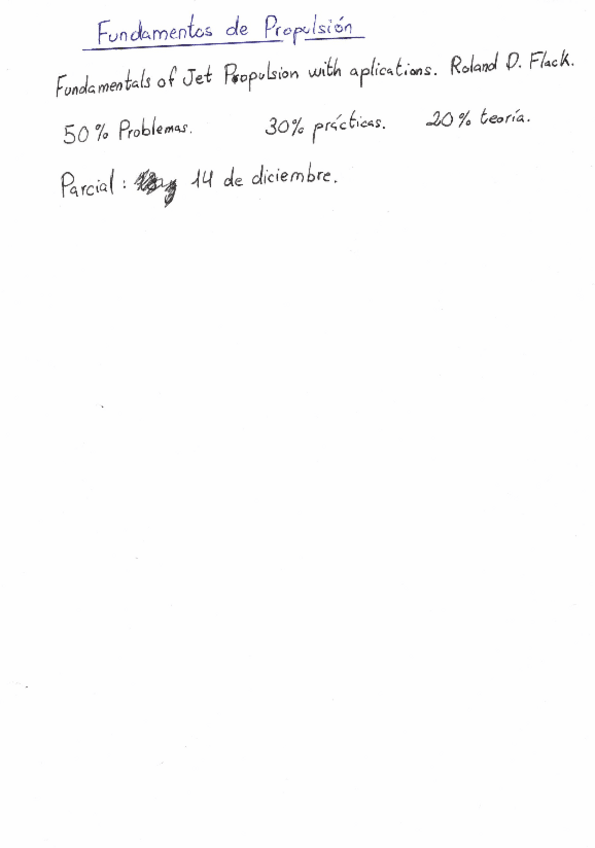 Fundamentos de Propulsión
Fundamentals of Jet Propulsion with aplications. Roland D. Flack.
50% Problemas. 30% prácticas. 20% teoría.
Parcial: 14 de diciembre.